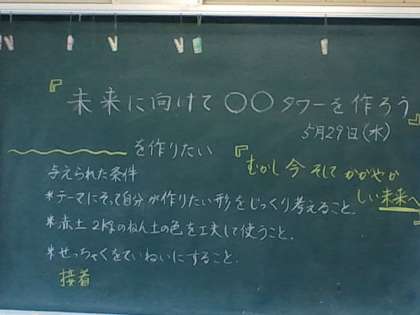 『未来に向けて○○タワーを作ろう』
5月29日(水)
を作りたい
『むかし 今 そして かがやか
しい未来へ
与えられた条件
*テーマにそって自分が作りたい形をじっくり考えること。
*赤土2kgのねん土の色を工夫して使うこと。
*せっちゃくをていねいにすること。
接着